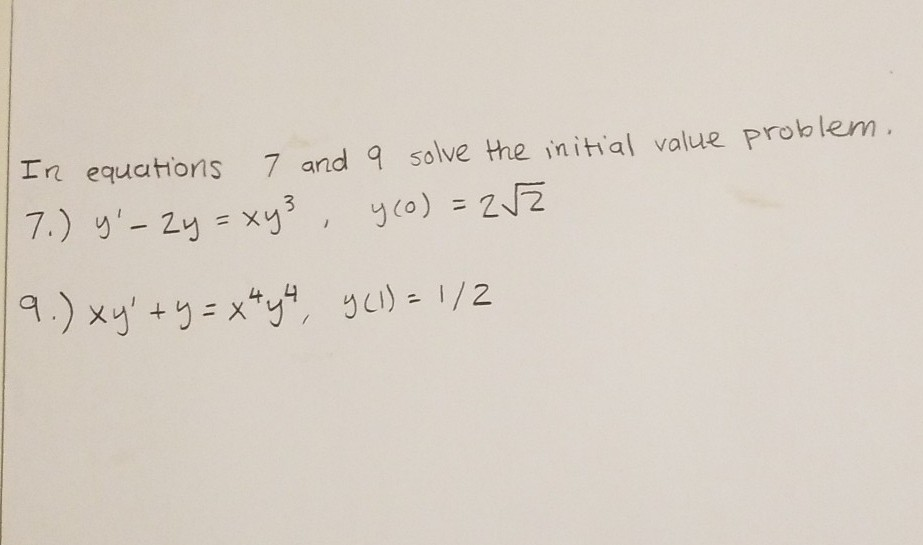 In equations 7 and 9 solve the initial value problem.
7.) y' - 2y = xy³ , y(0) = 2√2
9.) xy' + y = x⁴y⁴, y(1) = 1/2